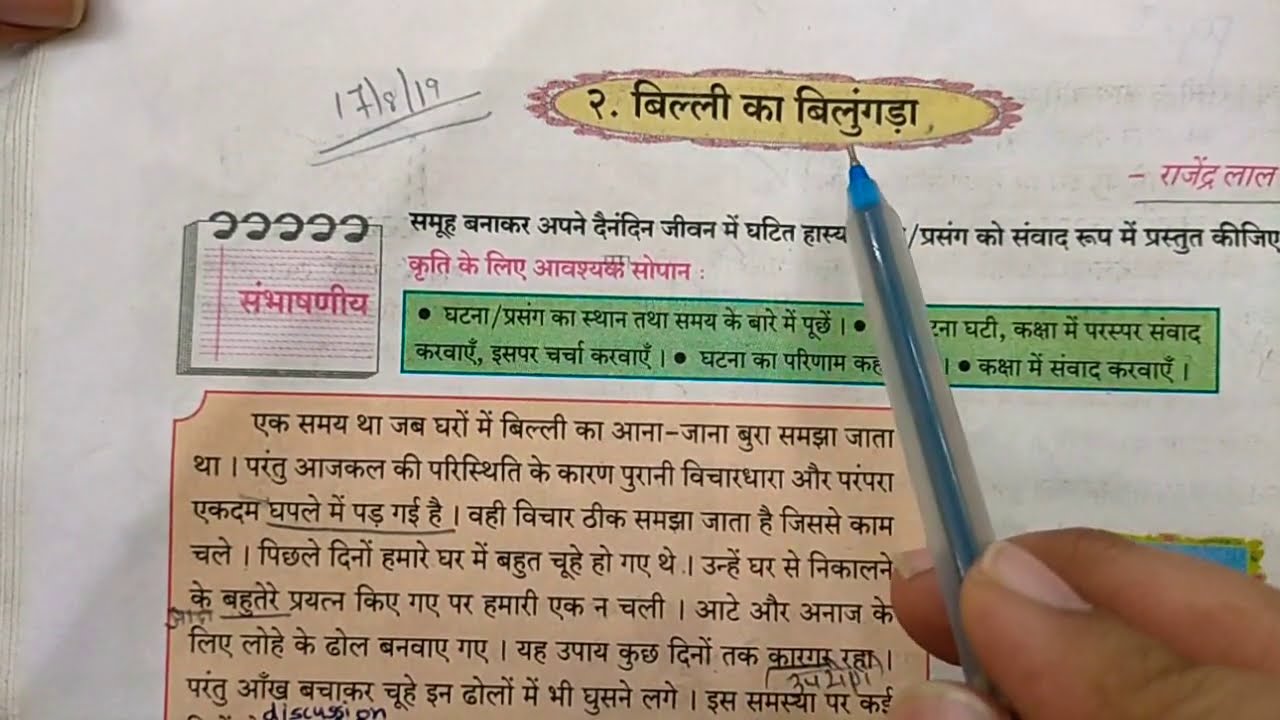 17/8/19
२. बिल्ली का बिलुंगड़ा
– राजेंद्र लाल
समूह बनाकर अपने दैनंदिन जीवन में घटित हास्य /प्रसंग को संवाद रूप में प्रस्तुत कीजिए
कृति के लिए आवश्यक सोपान :
संभाषणीय
● घटना/प्रसंग का स्थान तथा समय के बारे में पूछें । ● घटी, कक्षा में परस्पर संवाद
करवाएँ, इसपर चर्चा करवाएँ । ● घटना का परिणाम । ● कक्षा में संवाद करवाएँ ।
एक समय था जब घरों में बिल्ली का आना-जाना बुरा समझा जाता
था । परंतु आजकल की परिस्थिति के कारण पुरानी विचारधारा और परंपरा
एकदम घपले में पड़ गई है । वही विचार ठीक समझा जाता है जिससे काम
चले । पिछले दिनों हमारे घर में बहुत चूहे हो गए थे । उन्हें घर से निकालने
के बहुतेरे प्रयत्न किए गए पर हमारी एक न चली । आटे और अनाज के
लिए लोहे के ढोल बनवाए गए । यह उपाय कुछ दिनों तक कारगर रहा ।
परंतु आँख बचाकर चूहे इन ढोलों में भी घुसने लगे । इस समस्या पर कई
discussion